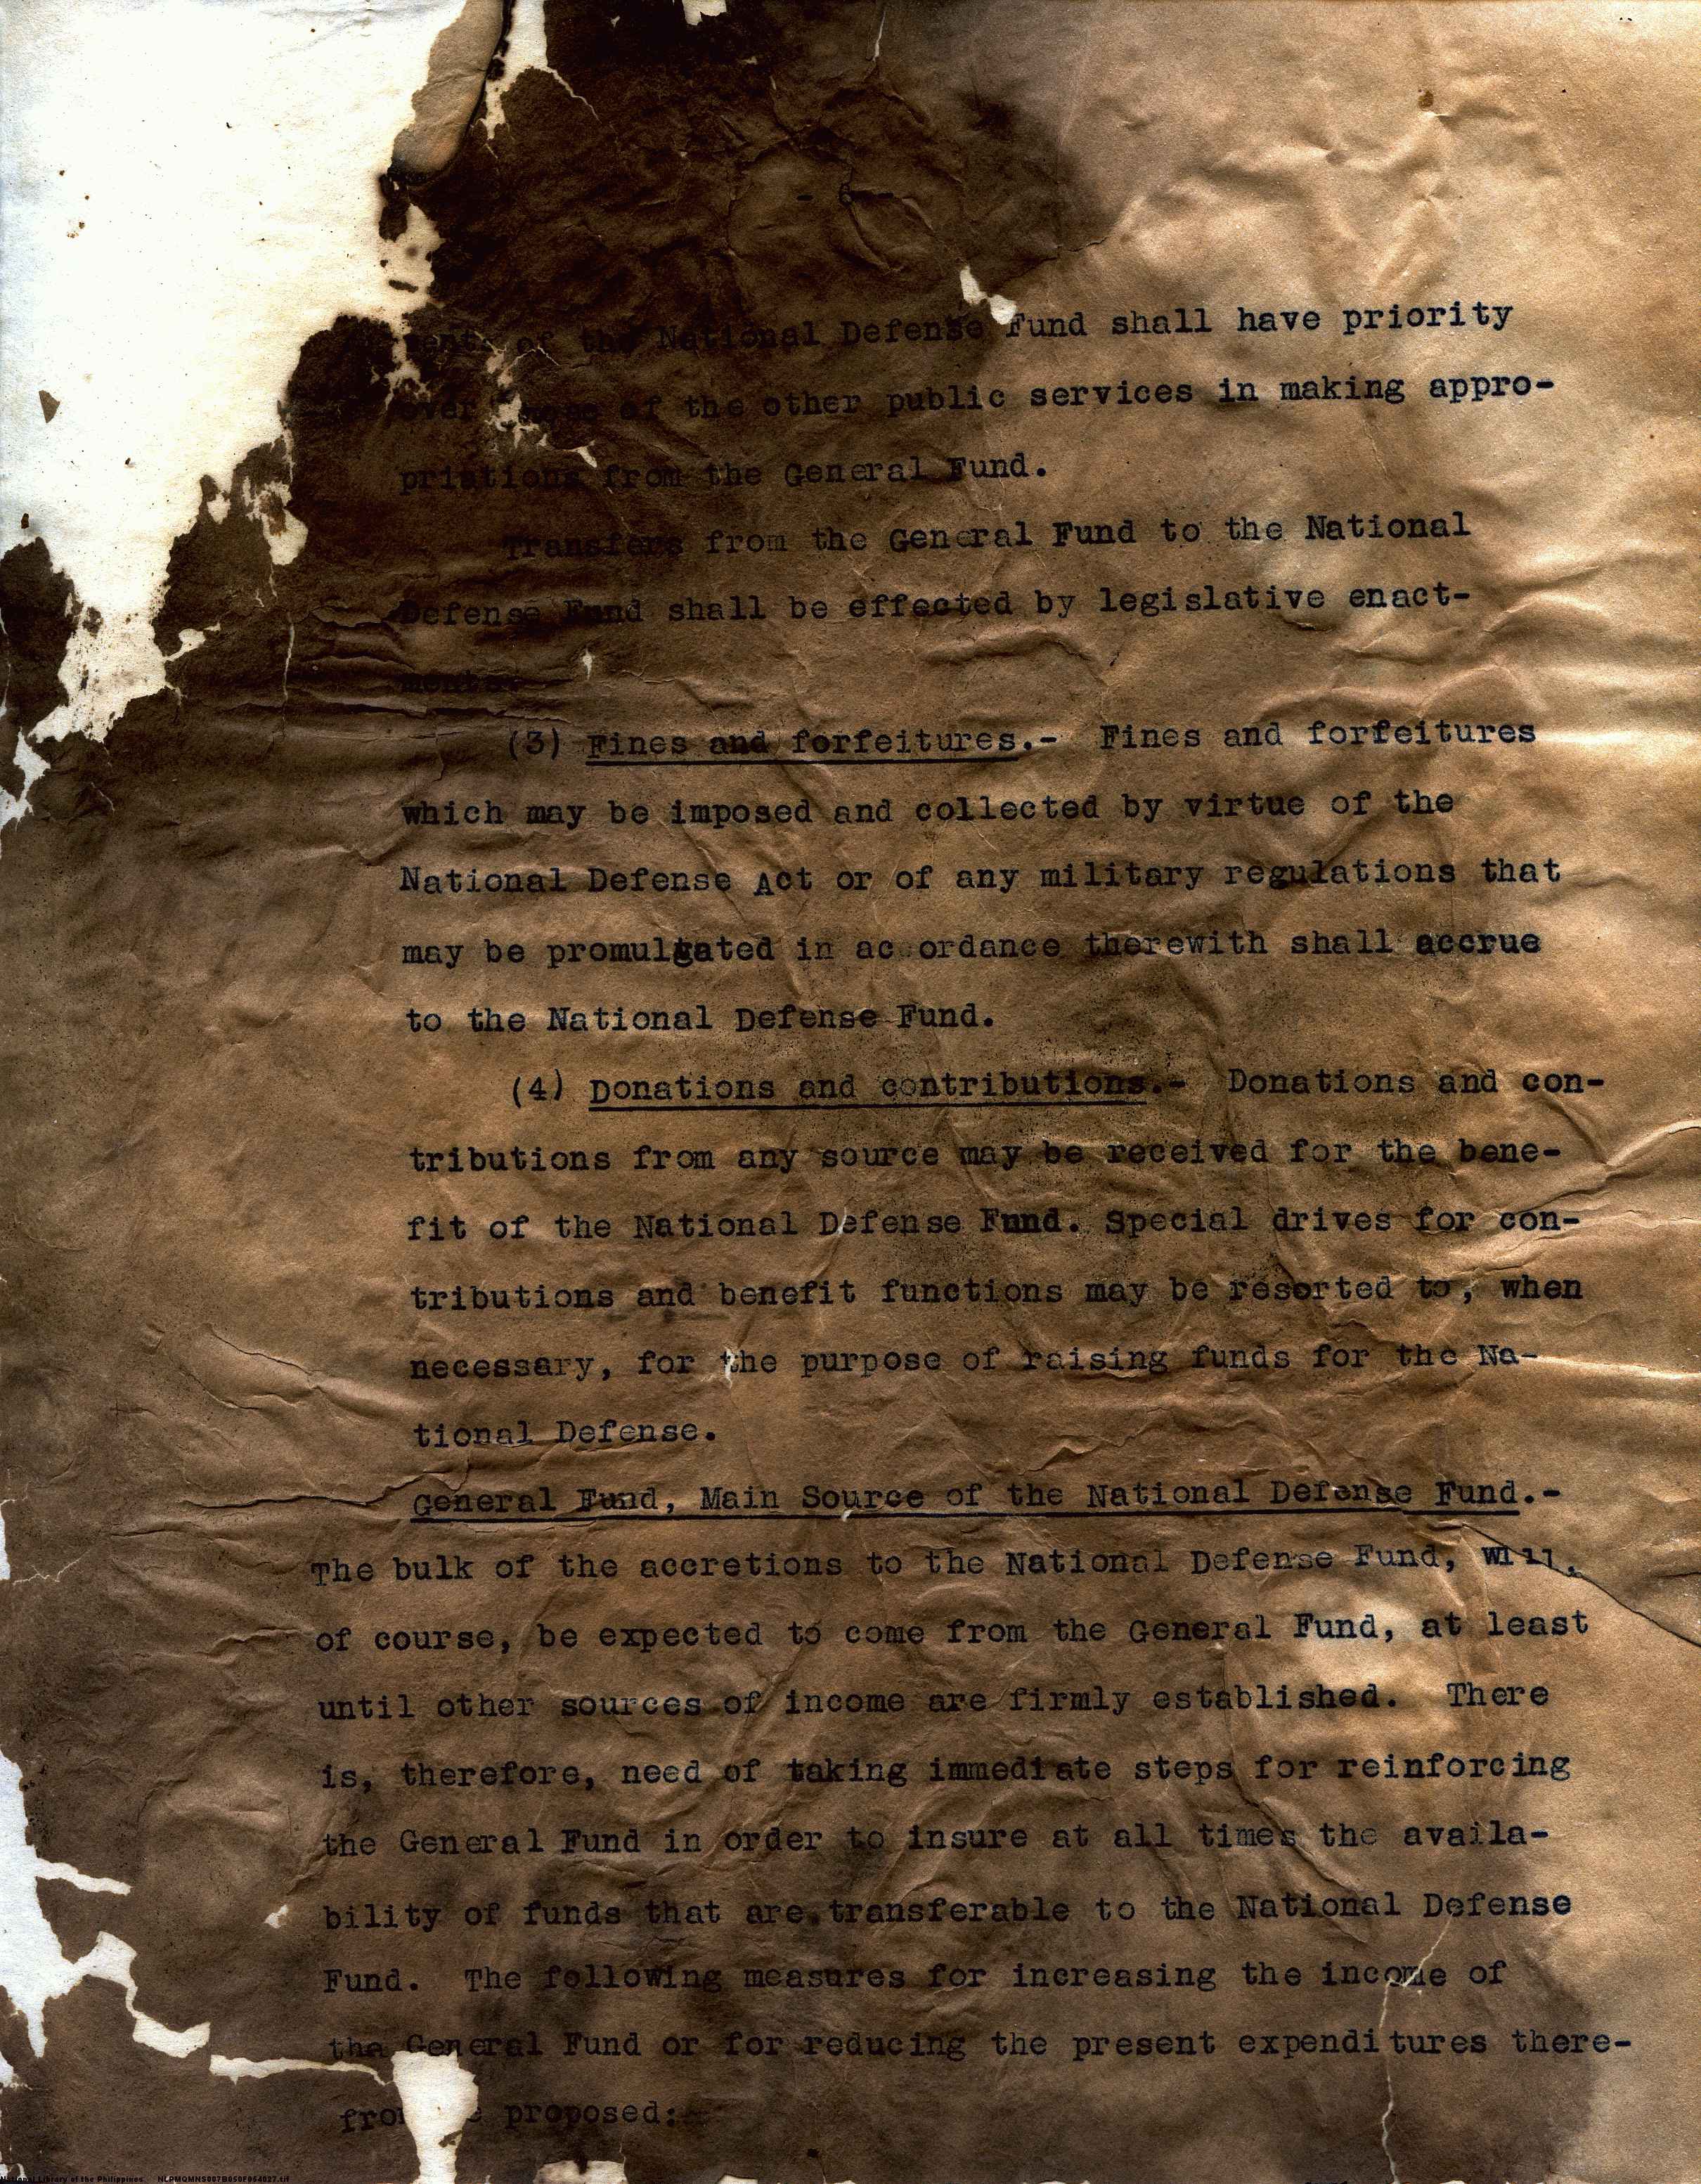 - 6 -
of the National Defense Fund shall have priority
over of the other public services in making appro-
priations from the General Fund.
Transfers from the General Fund to the National
Defense Fund shall be effected by legislative enact-
ments.
(3) Fines and forfeitures.- Fines and forfeitures
which may be imposed and collected by virtue of the
National Defense Act or of any military regulations that
may be promulgated in ac ordance therewith shall accrue
to the National Defense Fund.
(4) Donations and contributions.- Donations and con-
tributions from any source may be received for the bene-
fit of the National Defense Fund. Special drives for con-
tributions and benefit functions may be resorted to, when
necessary, for the purpose of raising funds for the Na-
tional Defense.
General Fund, Main Source of the National Defense Fund.-
The bulk of the accretions to the National Defense Fund, will,
of course, be expected to come from the General Fund, at least
until other sources of income are firmly established. There
is, therefore, need of taking immediate steps for reinforcing
the General Fund in order to insure at all times the availa-
bility of funds that are transferable to the National Defense
Fund. The following measures for increasing the income of
the General Fund or for reducing the present expenditures there-
proposed:
National Library of the Philippines